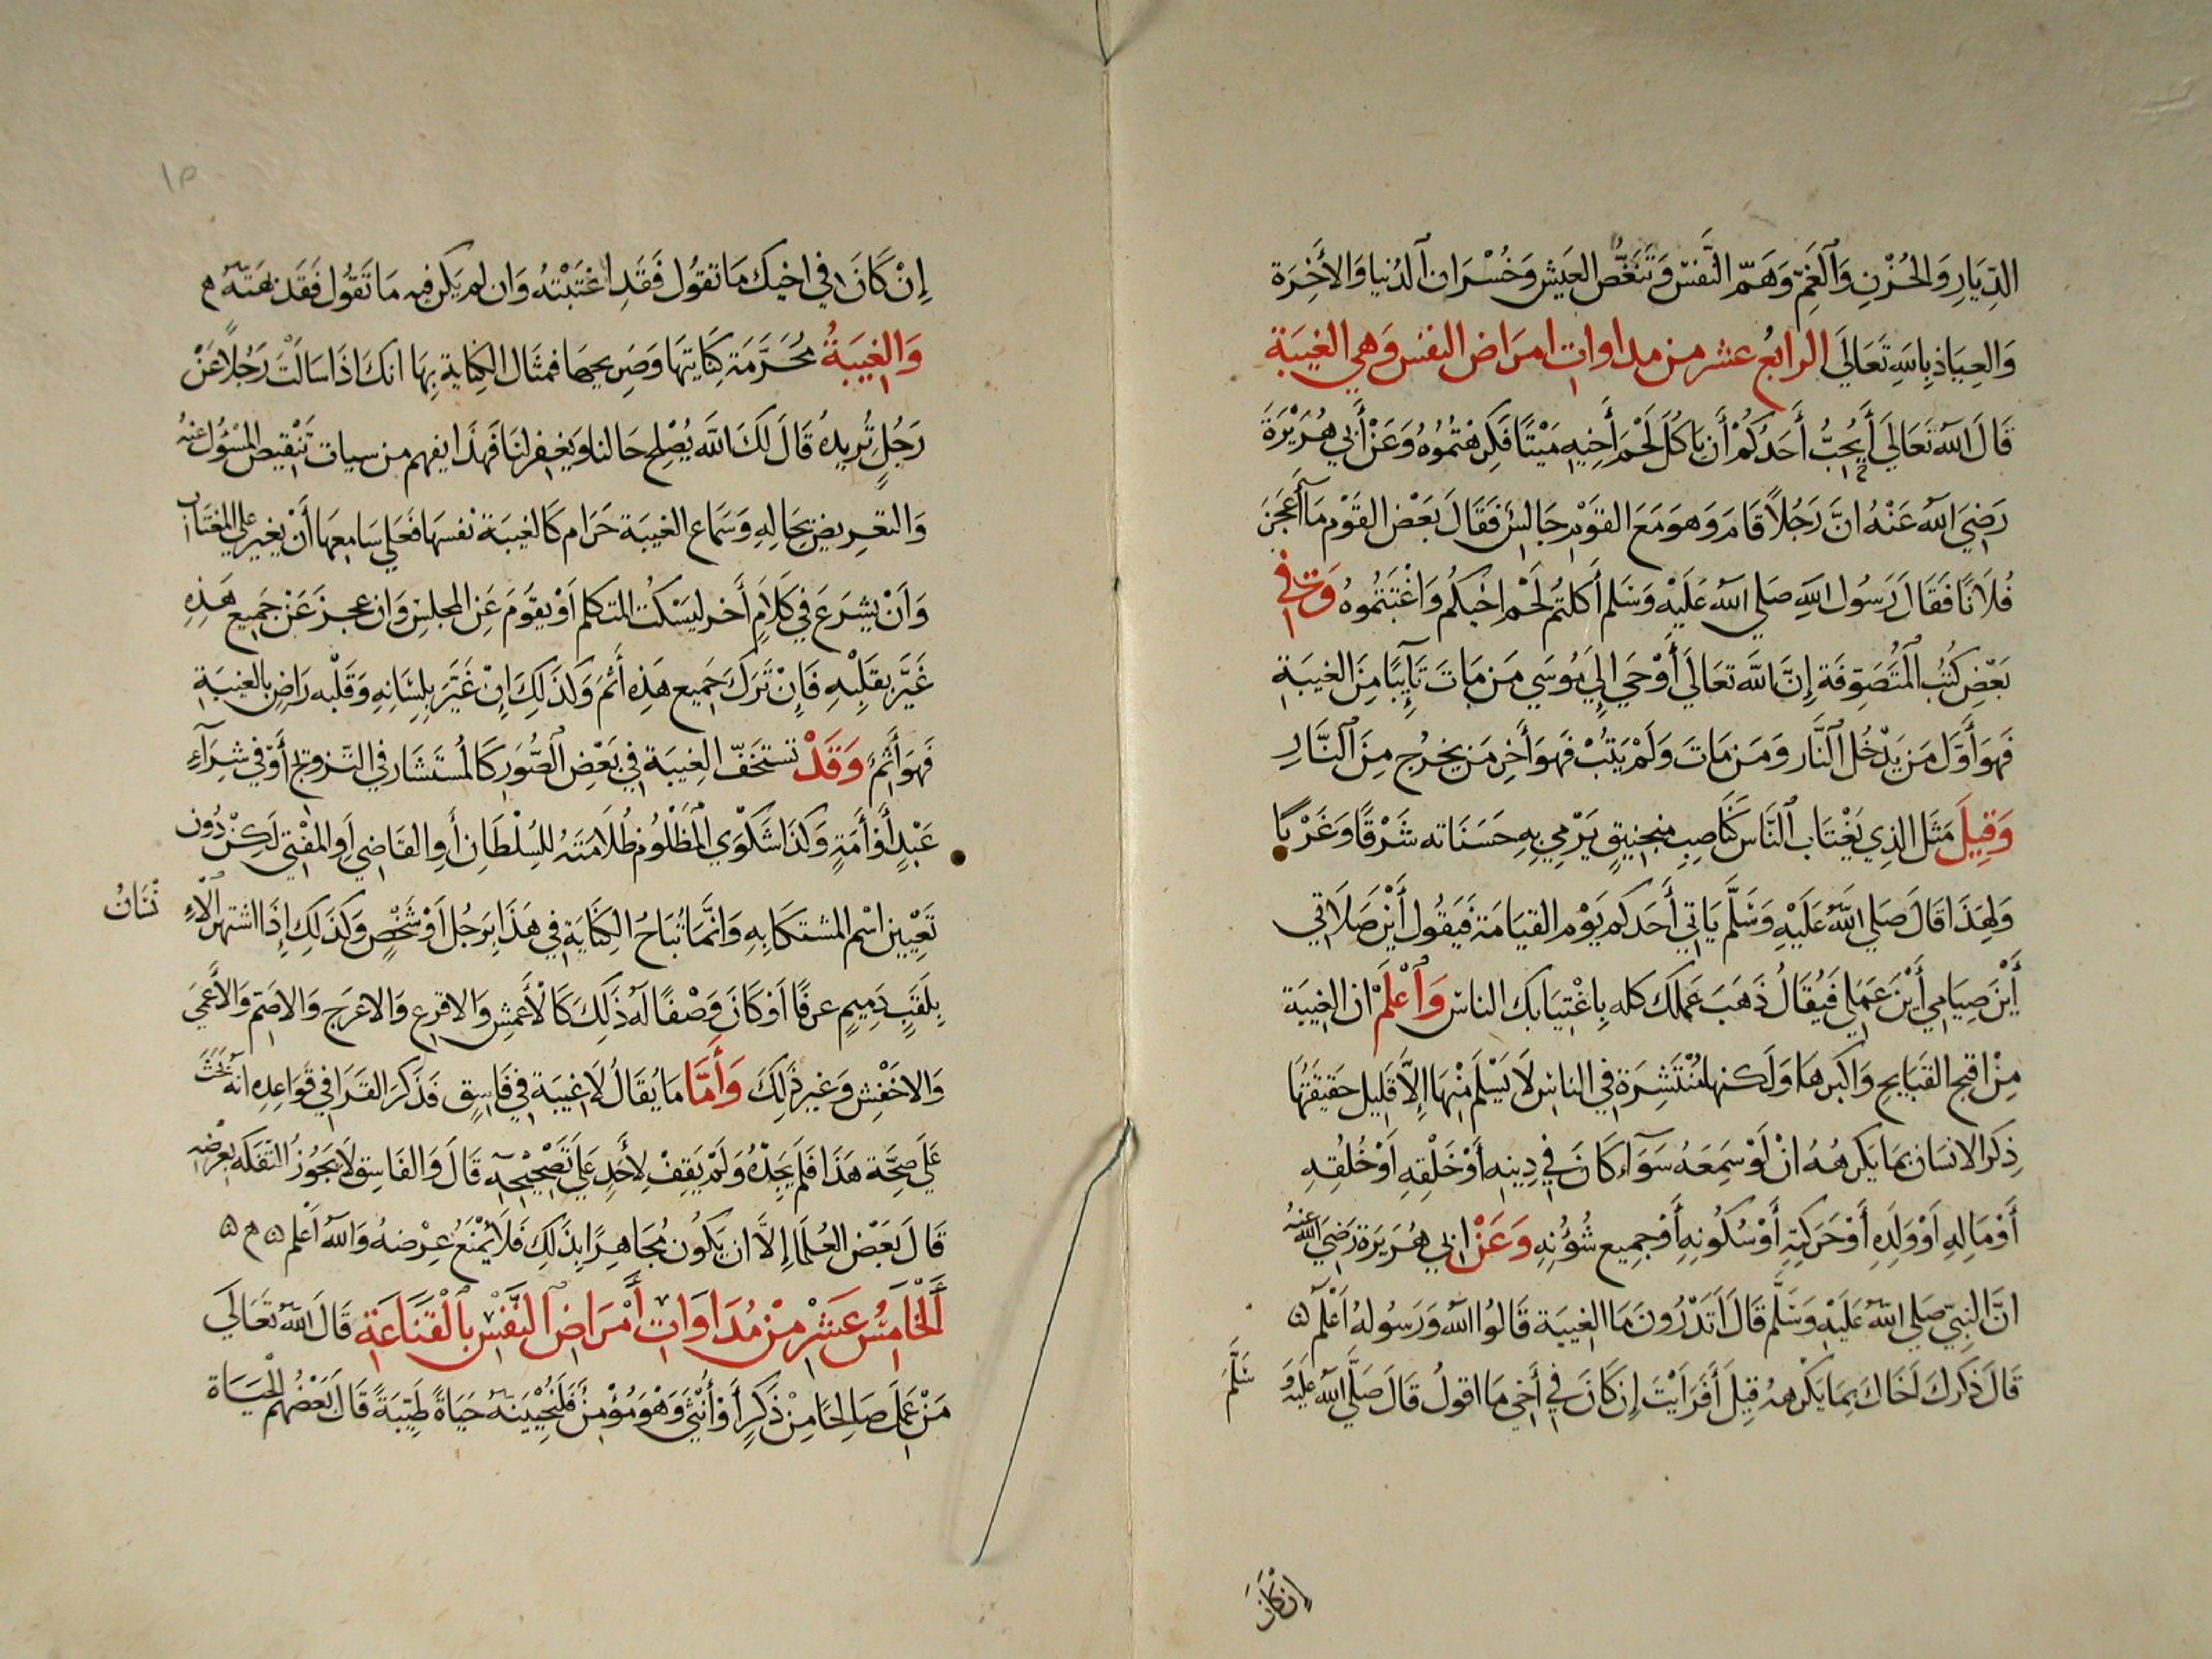 الدِّيَارِ وَالحُزْنِ وَالْغَمِّ وَهَمِّ النَّفْسِ وَتَنَغُّصُ العَيْشِ وَخُسْرَانِ الدُنيا وَالأَخِرَة
وَالعِيَاذ بِاللهِ تَعَالَى الرابعُ عشر من مداوات امرَاض النفس وَهي الغيبَة
قَالَ اللهُ تَعَالَى أَيُحِبُّ أَحَدُكُمْ أَن يَاكُلَ لَحْمَ أَخِيهِ مَيْتًا فَكِرهْتُمُوهُ وَعَنْ أَبي هُرَيْرَةَ
رَضِيَ اللهُ عَنْهُ انَّ رَجُلاً قَامَ وَهوَ مَعَ القَوْمِ جَالِسٌ فَقَالَ بَعْضُ القَوْمِ مَا أَعْجَزَ
فُلَانًا فَقَالَ رَسُول اللهِ صَلي اللهُ عَلَيْهِ وَسَلم أَكَلتُمْ لَحْمَ اخيكُم وَاغْتَبْتُموه وَفي
بَعْضِ كُتُبِ الْمُتَصَوِّفَة إِنَّ اللهَ تَعَالَى أَوْحَي إِلَي مُوسَي مَن مَاتَ تَائِبًا مِنَ الغيبَةِ
فَهوَ أَوَّلُ مَن يَدْخُل النَّار وَمَن مَاتَ وَلَمْ يَتُبْ فَهوَ أَخِر مَن يخرُج مِنَ النَّارِ
وَقِيلَ مَثَل الذِي يَغْتَاب النَّاس كَنَاصِبِ منجنيقٍ يَرْمِي بِهِ حَسَنَاته شَرْقًا وَغَرْبًا
وَلِهَذَا قَالَ صَلي اللهُ عَلَيْهِ وَسَلَّم يَاتي أَحَدكم يَوْم القيَامَة فَيَقُول أَيْنَ صَلَاتي
أَيْنَ صِيَامِي أَيْنَ عَمَلِي فَيُقَالُ ذَهَبَ عَمَلَك كله بِاغْتِيَابك الناس وَاعْلَمْ ان الغِيبَة
مِنْ اقبح القَبَايحِ وَاكبرهَا وَلَكنها مُنْتَشِرَة في الناس لَا يَسْلَم مِنْهَا إِلاَّ قَلِيل حَقِيقَتُهَا
ذِكرَ الانسَان بمَا يَكرهُهُ انْ لَوْ سَمِعَهُ سَوَآء كَانَ في دِينهِ أَوْ خَلْقِهِ أَوْ خُلُقِهِ
أَوْ مَالِهِ اَوْ وَلَدِهِ أَوْ حَرَكَتِهِ أَوْ سُكُونِهِ أَوْ جميع شُؤُنِهِ وَعَنْ ابي هُرَيرَة رَضيَ اللهُ عنهُ
انَّ النبيّ صَلي اللهُ عَلَيْهِ وَسَلَّم قَالَ أَتَدْرُونَ مَا الغيبَة قَالُوا اللهُ وَرَسُولهُ اَعْلَمْ
قَالَ ذِكرُكَ اَخَاكَ بِمَا يَكْرههُ قِيلَ أَفَرَأَيْتَ إِن كَانَ في أَخي مَا اقولُ قَالَ صَلَّي اللهُ عَلَيهِ وَسَلَّمَ
إن كَانَ
١٥
إِنْ كَانَ في اخيك مَا تقُول فَقَد اغْتَبْتهُ وَان لم يَكن فيه مَا تَقُول فَقَد بَهَتَّهُ
وَالغيبَةُ مُحَرَّمَة كِنَايتَهَا وَصَرِيحهَا فمثَال الكِنَاية بِهَا انكَ اذَا سَالْتَ رَجُلاً عَنْ
رَجُلٍ تُرِيدُ قَالَ لَكَ اللهَ يُصْلِح حَالنا وَيغفر لنَا فَهَذَا يفهم من سيات تَنْقيص المَسْؤُل عنهُ
وَالتعريض بحَالِهِ وَسَمَاع الغيبَة حَرَام كَالغيبَة نفسهَا فَعَلي سَامعِهَا أَنْ يغير عَلي المغتَاب
وَأَنْ يَشرَعَ في كَلَامٍ أَخر ليَسْكُت المتكلم أَوْ يقوَم عَنِ المجلسِ وَان عجزَ عَن جَميع هَذِهِ
غَيَّرَ بقَلْبِهِ فَإِنْ تَرَكَ جَميع هَذِهِ أَثم وَكَذَلِكَ اِنْ غَيَّرَ بِلِسَانِهِ وَقَلْبه رَاضٍ بالغيبَةِ
فَهوَ أَثِمٌ وَقَدْ تستخفّ الغِيبَة في بَعْضِ الصُّوَرِ كَالمُسْتَشَار في التَّزويج أَوْ في شِرَآءِ
عَبْدٍ أَوْ أَمَةٍ وَكَذَا شَكْوَي المَظْلُومِ ظُلَامَتَهُ للسُلْطَانِ أَوِ القَاضِي أَوِ المُفْتي لَكِنْ دُون
تَعْيين اسْم المشتكَا بِهِ وَانَّمَا تُبَاحُ الكِنَايَة في هَذَا بِرَجُل أَوْ شَخْصٍ وَكَذَلِكَ إِذَا اشتهر الاِنْسَانُ
بِلَقَبٍ ذِمِيمٍ عرفًا أَوْ كَانَ وَصْفًا لَهُ ذَلِكَ كَالأَعمش وَالاقرع وَالاعرَج وَالاصَم وَالأَعمَي
وَالاخفش وَغير ذَلِكَ وَأَمَّا مَا يُقَالُ لَا غيبَة في فَاسِقٍ فَذَكرَ القَرَافي في قَوَاعِدِهِ أنهُ بَحَثَ
عَلَي صِحَّة هَذَا فَلَم يَجِدْهُ وَلَمْ يَقِفْ لِأَحَدٍ عَلَي تَصْحيحِهِ قَالَ وَالفَاسِق لَا يَجُوز التفَكه بعِرْضِهِ
قَالَ بَعْض العُلَمَا إِلاَّ ان يَكُون مُجَاهِرًا بِذَلِكَ فَلَا يَمْنَعُ عِرْضهُ وَاللهُ أَعْلم
اَلْخَامِسُ عَشْر مِنْ مُدَاوَاتِ أَمْرَاضِ النَّفْسِ بِالْقَنَاعَةِ قَالَ اللهُ تَعَالَى
مَنْ عَمِلَ صَالِحًا مِنْ ذَكَرٍ أَوْ أُنْثَي وَهْوَ مُؤْمِنٌ فَلَنُحْيِيَنّهُ حَيَاةً طَيِّبَةً قَالَ بَعْضُهُم الحَيَاة